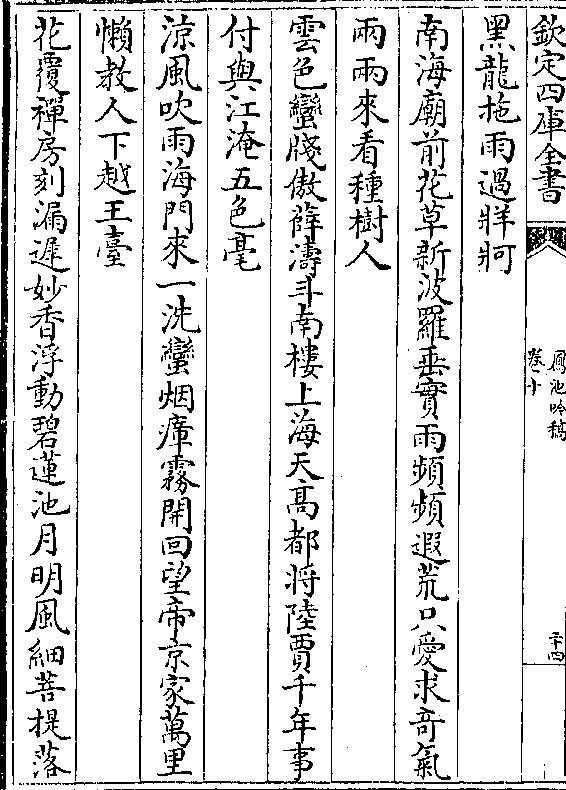 欽定四庫全書
鳳池吟稿
卷十
二十四
黑龍拖雨過牂牁
南海廟前花草新波羅垂實雨頻頻遐荒只愛求奇氣
兩兩來看種樹人
雲色蠻牋傲薛濤斗南樓上海天高都將陸賈千年事
付與江淹五色毫
涼風吹雨海門來一洗蠻烟瘴霧開回望帝京家萬里
懶教人下越王臺
花覆禪房刻漏遲妙香浮動碧蓮池月明風細菩提落